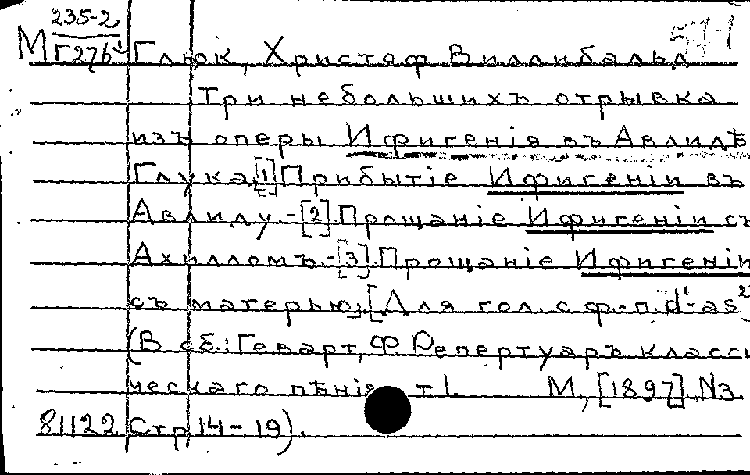 235-2
М Г276 Глюк, Христоф Виллибальд
Три небольшихъ отрывка
изъ оперы Ифигенія въ Авлидѣ
Глука, [1] Прибытіе Ифигеніи въ
Авлиду - [2] Прощаніе Ифигеніи съ
Ахилломъ - [3] Прощаніе Ифигеніи
съ матерью, [Для гол. с ф.-п. d¹-as²]
(В сб.: Геварт, Ф. Репертуаръ класси
ческаго пѣнія т I. М, [1897] N3
81122 Стр 14-19).